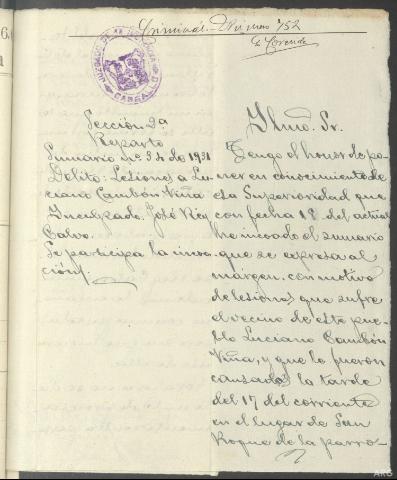 Criminal. Número 752
JUZGADO DE
CARBALLO
Sección 2ª
Reparto
Sumario nº 34 de 1931
Delito: Lesiones a Lu-
ciano Cambón Viña
Inculpado. José Rey
Calvo.
Se participa la incoa-
ción.
Ilmo. Sr.
Tengo el honor de po-
ner en conocimiento de
esa Superioridad que
con fecha 18 del actual
he incoado el sumario
que se expresa al
margen, con motivo
de lesiones que sufre
el vecino de este pue-
blo Luciano Cambón
Viña, y que le fueron
causadas la tarde
del 17 del corriente
en el lugar de San
Roque de la parro-